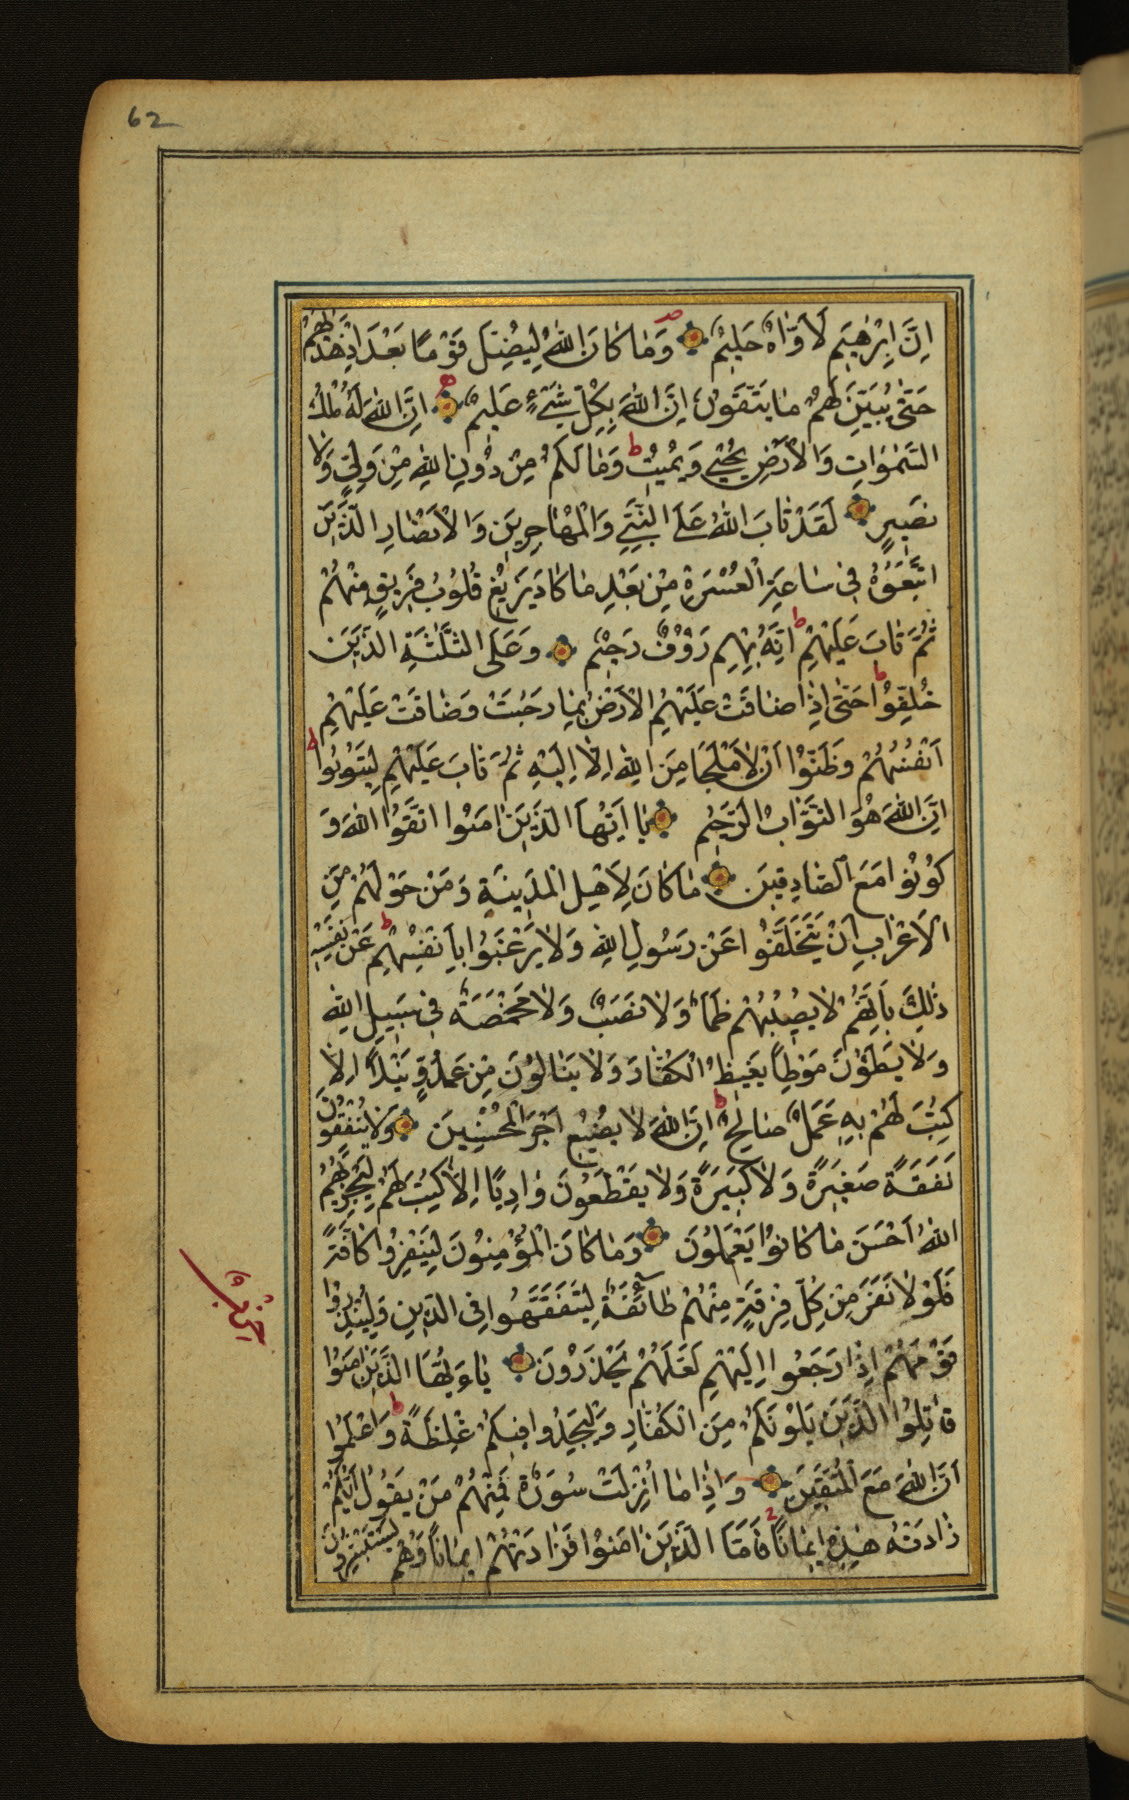 62
اِنَّ اِبْرٰهِيمَ لَاَوَّاهٌ حَلِيمٌ وَمٰا كٰانَ اللّٰهُ لِيُضِلَّ قَوْمًا بَعْدَ اِذْ هَدٰيهُمْ
حَتّٰى يُبَيِّنَ لَهُمْ مٰا يَتَّقُونَ اِنَّ اللّٰهَ بِكُلِّ شَيْءٍ عَلِيمٌ اِنَّ اللّٰهَ لَهُ مُلْكُ
السَّمٰوٰاتِ وَالْاَرْضِ يُحْيٖي وَيُمِيتُ ط وَمٰا لَكُمْ مِنْ دُونِ اللّٰهِ مِنْ وَلِيٍّ وَلٰا
نَصِيرٍ لَقَدْ تٰابَ اللّٰهُ عَلَى النَّبِيِّ وَالْمُهٰاجِرِينَ وَالْاَنْصٰارِ الَّذِينَ
اتَّبَعُوهُ فِي سٰاعَةِ الْعُسْرَةِ مِنْ بَعْدِ مٰا كٰادَ يَزِيغُ قُلُوبُ فَرِيقٍ مِنْهُمْ
ثُمَّ تٰابَ عَلَيْهِمْ ط اِنَّهُ بِهِمْ رَؤُفٌ رَحِيمٌ وَعَلَى الثَّلٰثَةِ الَّذِينَ
خُلِّفُوا ط حَتّٰى اِذٰا ضٰاقَتْ عَلَيْهِمُ الْاَرْضُ بِمٰا رَحُبَتْ وَضٰاقَتْ عَلَيْهِمْ
اَنْفُسُهُمْ وَظَنُّوا اَنْ لٰا مَلْجَاَ مِنَ اللّٰهِ اِلّٰا اِلَيْهِ ثُمَّ تٰابَ عَلَيْهِمْ لِيَتُوبُوا ط
اِنَّ اللّٰهَ هُوَ التَّوَّابُ الرَّحِيمُ يٰا اَيُّهَا الَّذِينَ اٰمَنُوا اتَّقُوا اللّٰهَ وَ
كُونُوا مَعَ الصّٰادِقِينَ مٰا كٰانَ لِاَهْلِ الْمَدِينَةِ وَمَنْ حَوْلَهُمْ مِنَ
الْاَعْرٰابِ اَنْ يَتَخَلَّفُوا عَنْ رَسُولِ اللّٰهِ وَلٰا يَرْغَبُوا بِاَنْفُسِهِمْ عَنْ نَفْسِهِ ط
ذٰلِكَ بِاَنَّهُمْ لٰا يُصِيبُهُمْ ظَمَاٌ وَلٰا نَصَبٌ وَلٰا مَخْمَصَةٌ فِي سَبِيلِ اللّٰهِ
وَلٰا يَطَؤُنَ مَوْطِاً يَغِيظُ الْكُفّٰارَ وَلٰا يَنٰالُونَ مِنْ عَدُوٍّ نَيْلًا اِلّٰا
كُتِبَ لَهُمْ بِهِ عَمَلٌ صٰالِحٌ ط اِنَّ اللّٰهَ لٰا يُضِيعُ اَجْرَ الْمُحْسِنِينَ وَلٰا يُنْفِقُونَ
نَفَقَةً صَغِيرَةً وَلٰا كَبِيرَةً وَلٰا يَقْطَعُونَ وٰادِيًا اِلّٰا كُتِبَ لَهُمْ لِيَجْزِيَهُمُ
اللّٰهُ اَحْسَنَ مٰا كٰانُوا يَعْمَلُونَ وَمٰا كٰانَ الْمُؤْمِنُونَ لِيَنْفِرُوا كٰافَّةً
فَلَوْلٰا نَفَرَ مِنْ كُلِّ فِرْقَةٍ مِنْهُمْ طٰائِفَةٌ لِيَتَفَقَّهُوا فِي الدِّينِ وَلِيُنْذِرُوا
قَوْمَهُمْ اِذٰا رَجَعُوا اِلَيْهِمْ لَعَلَّهُمْ يَحْذَرُونَ يٰاءَيُّهَا الَّذِينَ اٰمَنُوا
قٰاتِلُوا الَّذِينَ يَلُونَكُمْ مِنَ الْكُفّٰارِ وَلْيَجِدُوا فِيكُمْ غِلْظَةً ط وَاعْلَمُوا
اَنَّ اللّٰهَ مَعَ الْمُتَّقِينَ وَاِذٰا مٰا اُنْزِلَتْ سُورَةٌ فَمِنْهُمْ مَنْ يَقُولُ اَيُّكُمْ
زٰادَتْهُ هٰذِهِ اِيمٰانًا فَاَمَّا الَّذِينَ اٰمَنُوا فَزٰادَتْهُمْ اِيمٰانًا وَهُمْ يَسْتَبْشِرُونَ